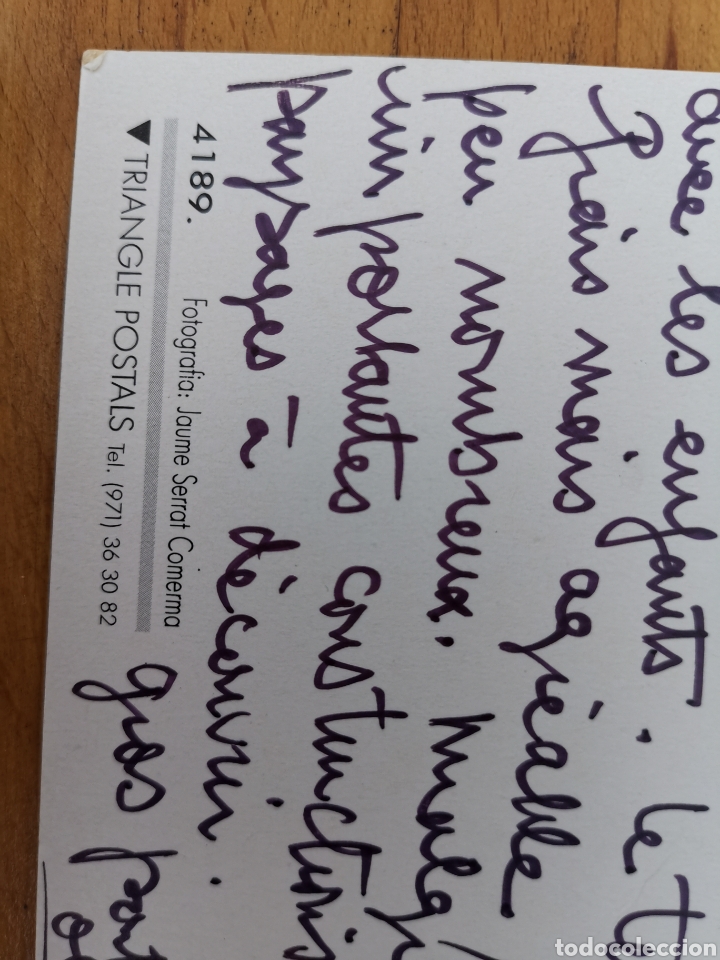 avec les enfants. le t
frais mais agréable.
peu nombreux. Malg
importantes constructions
paysages à découvrir.
gros
4189.
Fotografia: Jaume Serrat Comerma
▼ TRIANGLE POSTALS Tel. (971) 36 30 82
todocoleccion.net